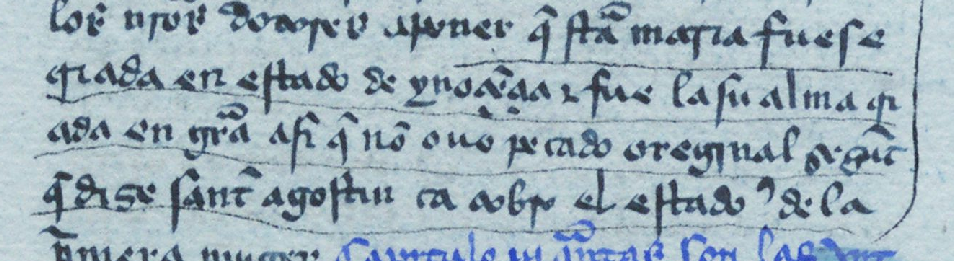 los nr̃os dotores aponer q̃ sta maria fuese
criada en estado de ynoçẽçia τ fue la su alma cri
ada en grã asi q̃ nõ ouo pecado oreginal segũt
q̃ dise sant agostin ca cobro el estado de la
p̃mera muger capitulo iii quãtas son las